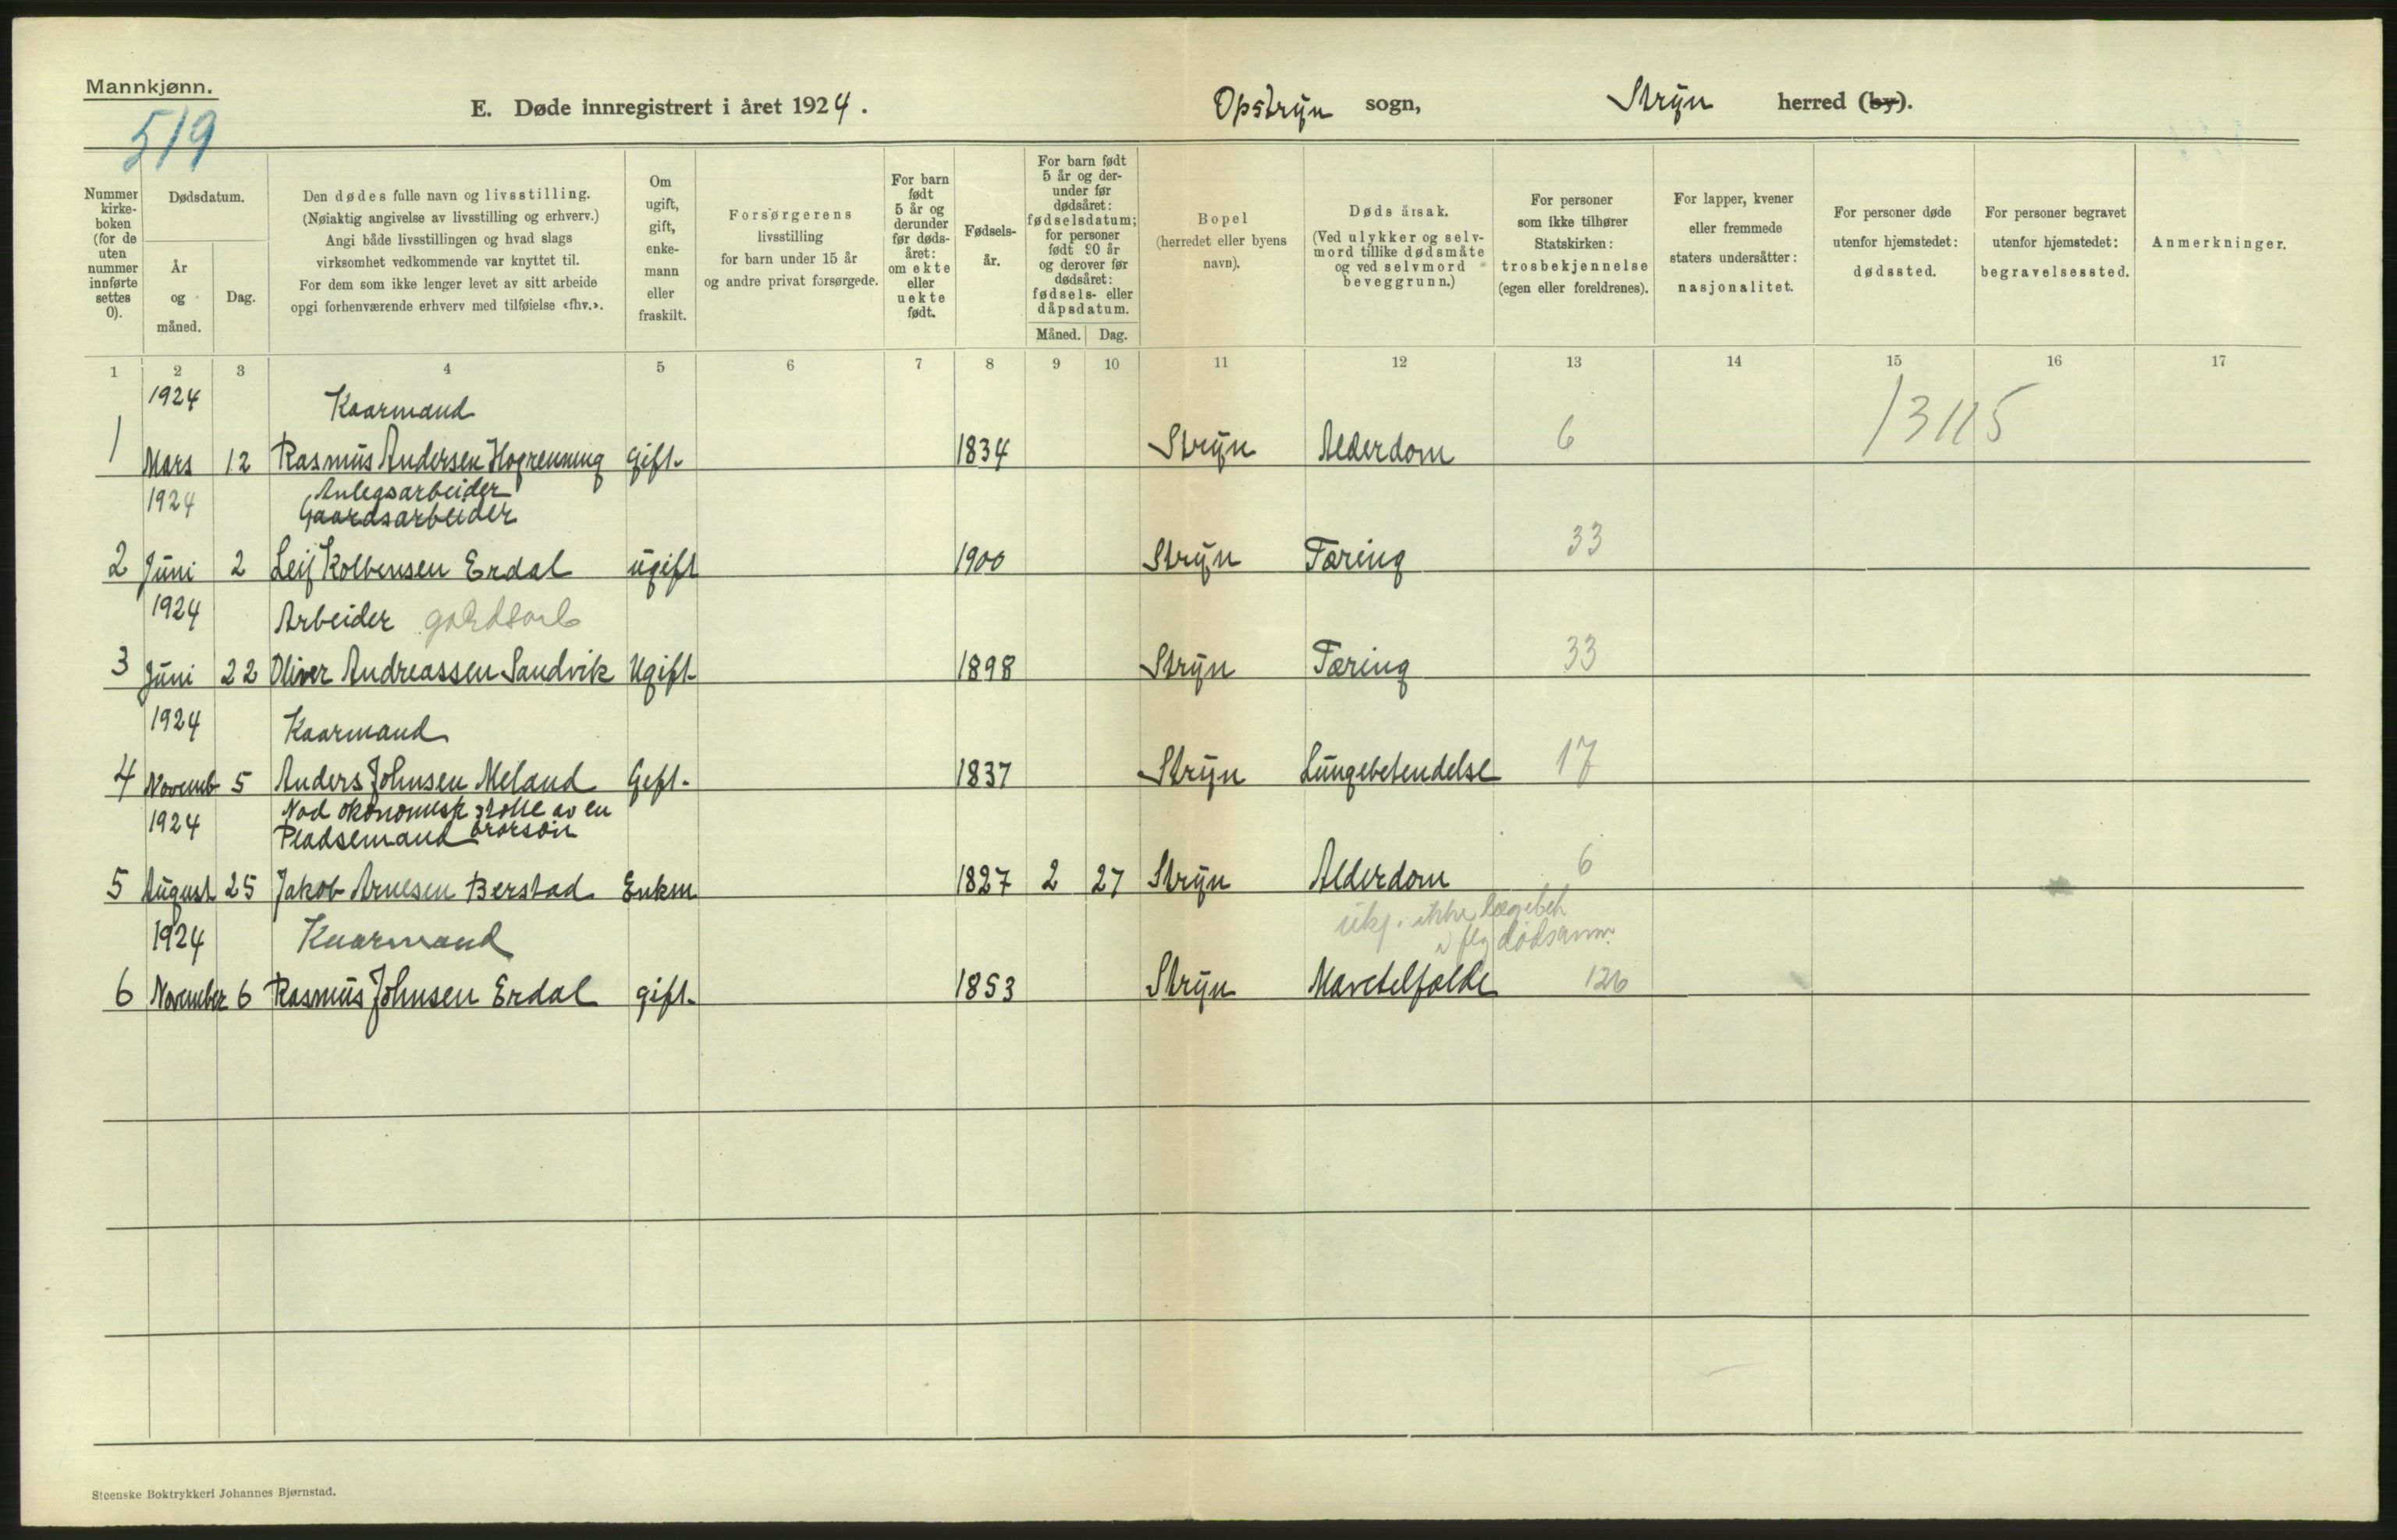 Mannkjønn.
519
E. Døde innregistrert i året 1924.
Opstryn sogn,
Stryn herred (by).
Nummer kirke-boken (for de uten nummer innførte settes 0).
Dødsdatum.
År og måned.
Dag.
Den dødes fulle navn og livsstilling.
(Nøiaktig angivelse av livsstilling og erhverv.)
Angi både livsstillingen og hvad slags
virksomhet vedkommende var knyttet til.
For dem som ikke lenger levet av sitt arbeide
opgi forhenværende erhverv med tilføielse «fhv.».
Om ugift, gift, enke-mann eller fraskilt.
Forsørgerens
livsstilling
for barn under 15 år
og andre privat forsørgede.
For barn født 5 år og derunder før døds-året: om ekte eller uekte født.
Fødsels-år.
For barn født 5 år og der-under før dødsåret: fødselsdatum; for personer født 90 år og derover før dødsåret: fødsels- eller dåpsdatum.
Måned. Dag.
Bopel
(herredet eller byens
navn).
Dødsårsak.
(Ved ulykker og selv-
mord tillike dødsmåte
og ved selvmord
beveggrunn.)
For personer
som ikke tilhører
Statskirken:
trosbekjennelse
(egen eller foreldrenes).
For lapper, kvener
eller fremmede
staters undersåtter:
nasjonalitet.
For personer døde
utenfor hjemstedet:
dødssted.
For personer begravet
utenfor hjemstedet:
begravelsessted.
Anmerkninger.
1 2 3 4 5 6 7 8 9 10 11 12 13 14 15 16 17
1924 Kaarmand 13115
1 Mars 12 Rasmus Andersen Hogrenning gift. 1834 Stryn Alderdom 6
Anlegsarbeider
1924 Gaardsarbeider
2 Juni 2 Leif Kolbensen Erdal ugift 1900 Stryn Tæring 33
1924 Arbeider gaardsarb
3 Juni 22 Oliver Andreassen Sandvik Ugift. 1898 Stryn Tæring 33
1924 Kaarmand
4 Novemb 5 Anders Johnsen Meland Gift. 1837 Stryn Lungebetendelse 17
Nød økonomisk støtte av en
1924 Pladsemand brorsøn
5 August 25 Jakob Arnesen Berstad Enkm 1827 2 27 Stryn Alderdom 6
ikke lægebeh
1924 Kaarmand dødsanm.
6 November 6 Rasmus Johnsen Erdal gift. 1853 Stryn Mavetelfælde 126
Steenske Boktrykkeri Johannes Bjørnstad.